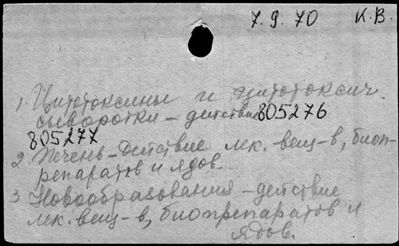 7.9.70 К.В.
1. Цитотоксины и цитотоксич.
сыворотки - действие 805276
805277
2. Печень - действие лек. вещ-в, биоп-
репаратов и ядов.
3. Новообразования - действие
лек. вещ-в, биопрепаратов и
ядов.